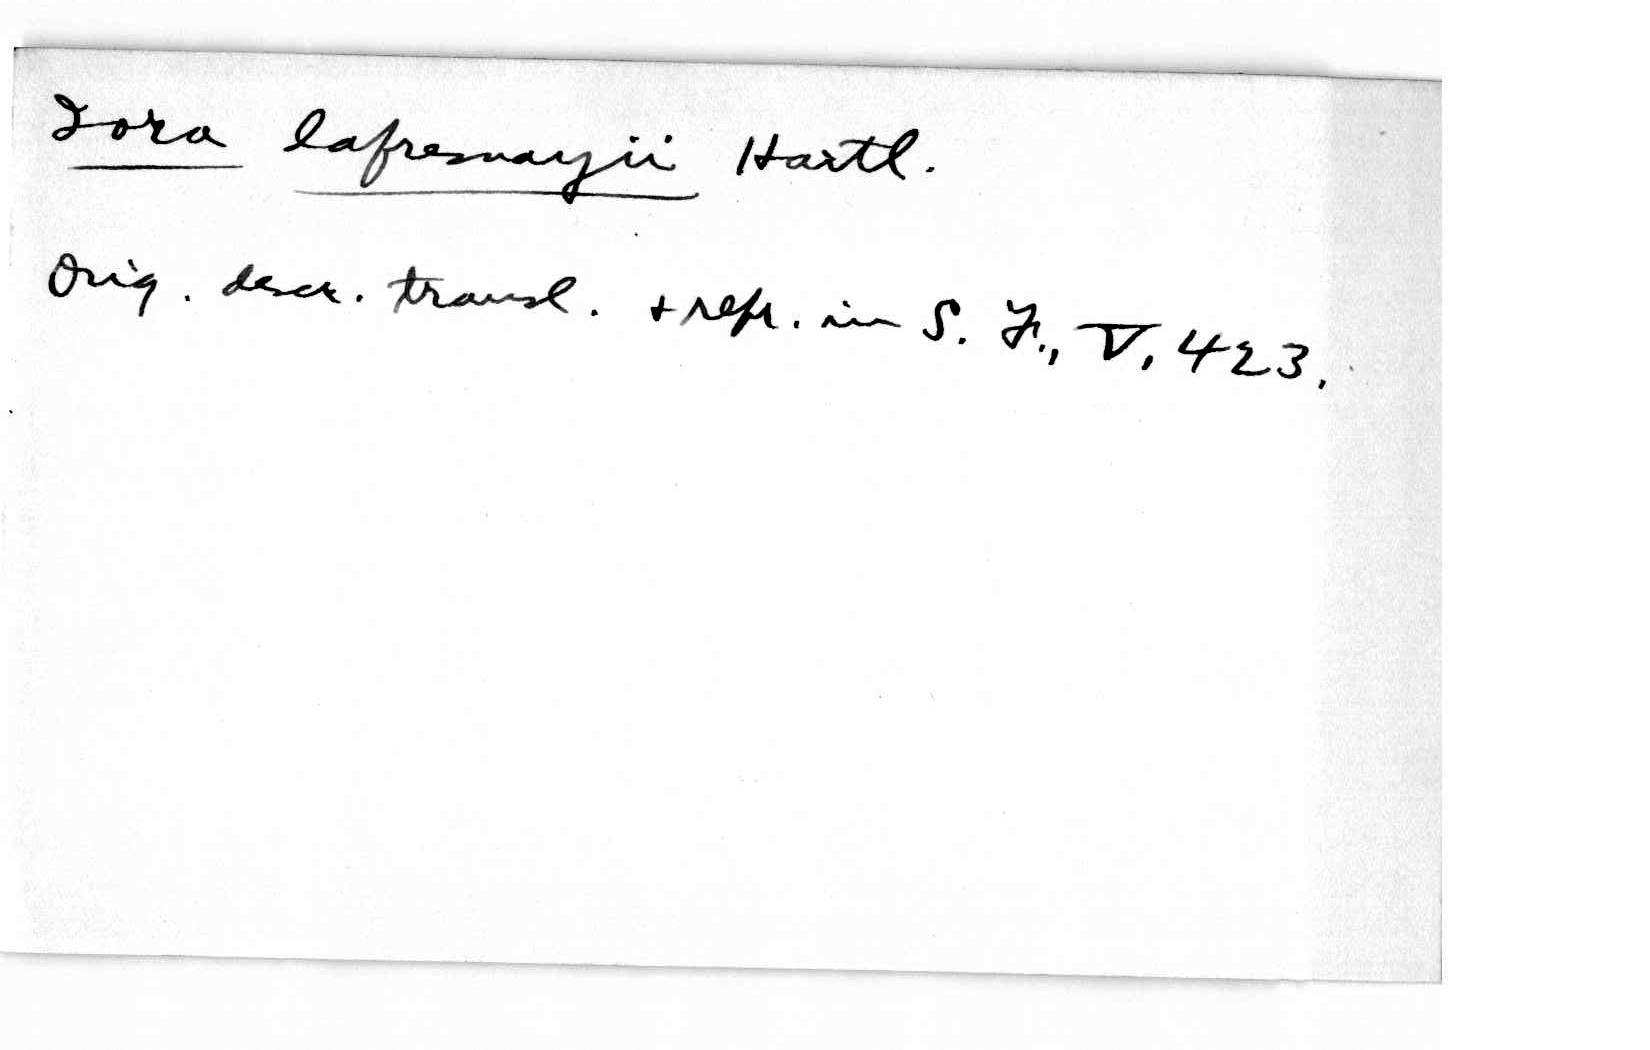 Iora lafresnayii Hartl.
Orig. descr. transl. + repr. in S. F., V, 423.